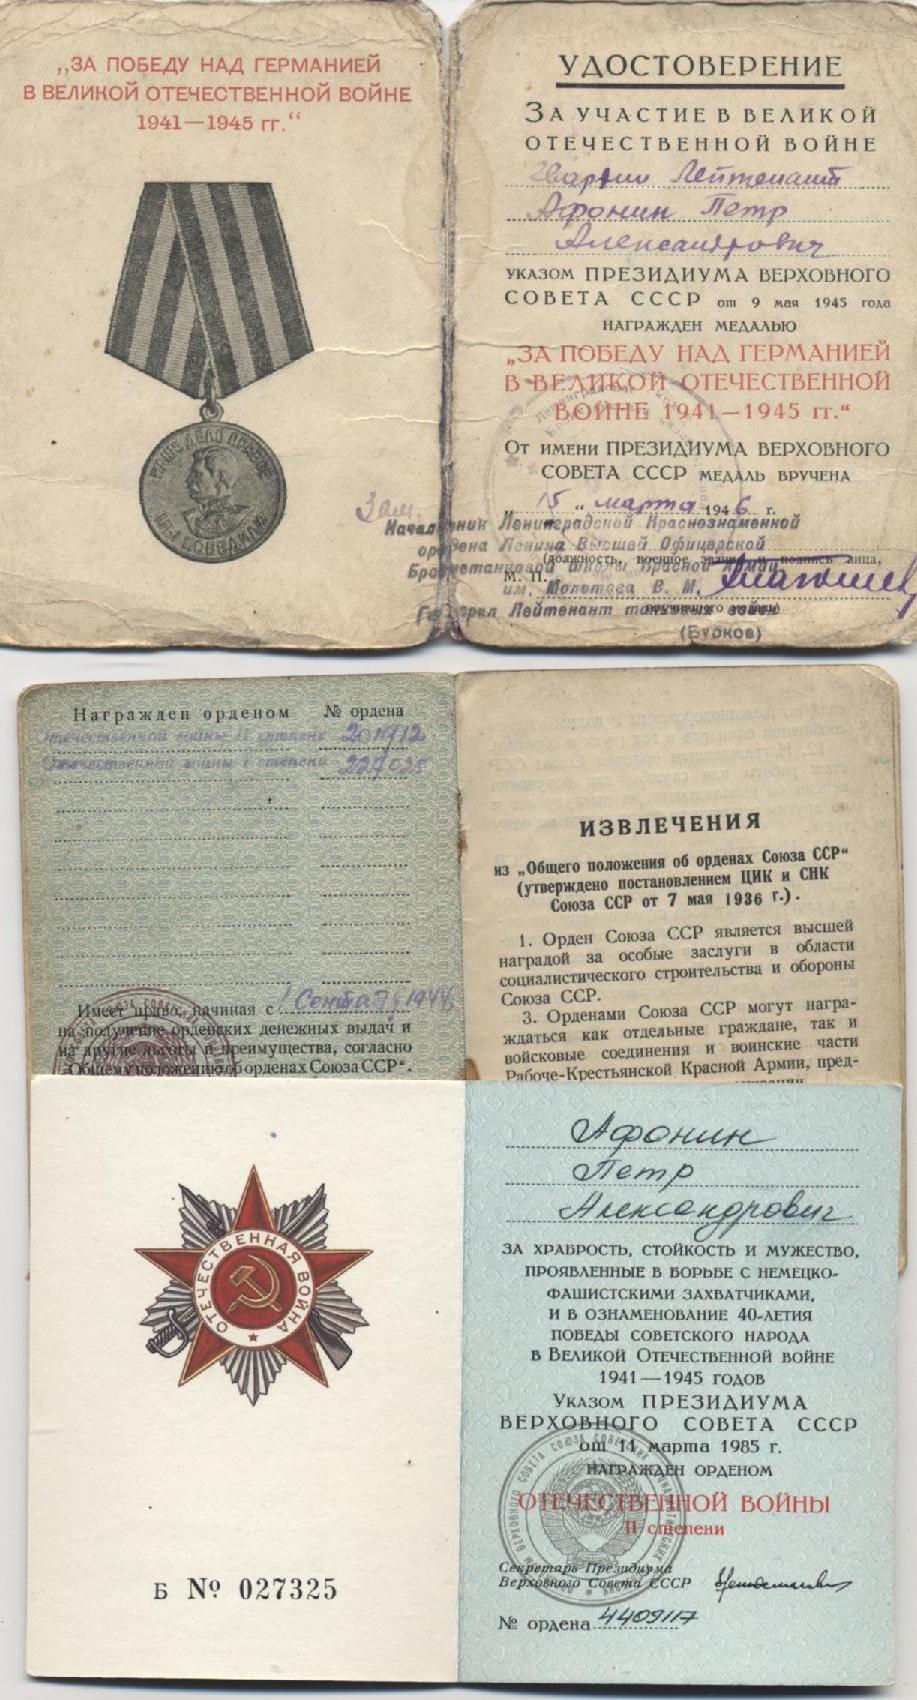 „ЗА ПОБЕДУ НАД ГЕРМАНИЕЙ
В ВЕЛИКОЙ ОТЕЧЕСТВЕННОЙ ВОЙНЕ
1941—1945 гг.“
НАШЕ ДЕЛО ПРАВОЕ
МЫ ПОБЕДИЛИ
УДОСТОВЕРЕНИЕ
ЗА УЧАСТИЕ В ВЕЛИКОЙ
ОТЕЧЕСТВЕННОЙ ВОЙНЕ
Гвардии Лейтенант
Афонин Петр
Александрович
УКАЗОМ ПРЕЗИДИУМА ВЕРХОВНОГО
СОВЕТА СССР от 9 мая 1945 года
НАГРАЖДЕН МЕДАЛЬЮ
„ЗА ПОБЕДУ НАД ГЕРМАНИЕЙ
В ВЕЛИКОЙ ОТЕЧЕСТВЕННОЙ
ВОЙНЕ 1941—1945 гг.“
От имени ПРЕЗИДИУМА ВЕРХОВНОГО
СОВЕТА СССР МЕДАЛЬ ВРУЧЕНА
„15“ марта 1946 г.
Зам.
Начальник Ленинградской Краснознаменной
ордена Ленина Высшей Офицерской
(должность, военное звание и подпись лица,
Бронетанковой Школы Красной Армии
М. П.
им. Молотова В. М.
вручившего медаль)
Генерал Лейтенант танковых войск
(Бурков)
Награжден орденом № ордена
Отечественной войны II степени 201912
Отечественной войны I степени
Имеет право, начиная с 1 Сентяб 1944
на получение орденских денежных выдач и
на другие льготы и преимущества, согласно
„Общему положению об орденах Союза ССР“.
ИЗВЛЕЧЕНИЯ
из „Общего положения об орденах Союза ССР“
(утверждено постановлением ЦИК и СНК
Союза ССР от 7 мая 1936 г.).
1. Орден Союза ССР является высшей
наградой за особые заслуги в области
социалистического строительства и обороны
Союза ССР.
3. Орденами Союза ССР могут награ-
ждаться как отдельные граждане, так и
войсковые соединения и воинские части
Рабоче-Крестьянской Красной Армии, пред-
ОТЕЧЕСТВЕННАЯ ВОЙНА
Б № 027325
Афонин
Петр
Александрович
ЗА ХРАБРОСТЬ, СТОЙКОСТЬ И МУЖЕСТВО,
ПРОЯВЛЕННЫЕ В БОРЬБЕ С НЕМЕЦКО-
ФАШИСТСКИМИ ЗАХВАТЧИКАМИ,
И В ОЗНАМЕНОВАНИЕ 40-ЛЕТИЯ
ПОБЕДЫ СОВЕТСКОГО НАРОДА
В ВЕЛИКОЙ ОТЕЧЕСТВЕННОЙ ВОЙНЕ
1941—1945 ГОДОВ
УКАЗОМ ПРЕЗИДИУМА
ВЕРХОВНОГО СОВЕТА СССР
от 11 марта 1985 г.
НАГРАЖДЕН ОРДЕНОМ
ОТЕЧЕСТВЕННОЙ ВОЙНЫ
II степени
Секретарь Президиума
Верховного Совета СССР
№ ордена 4409117